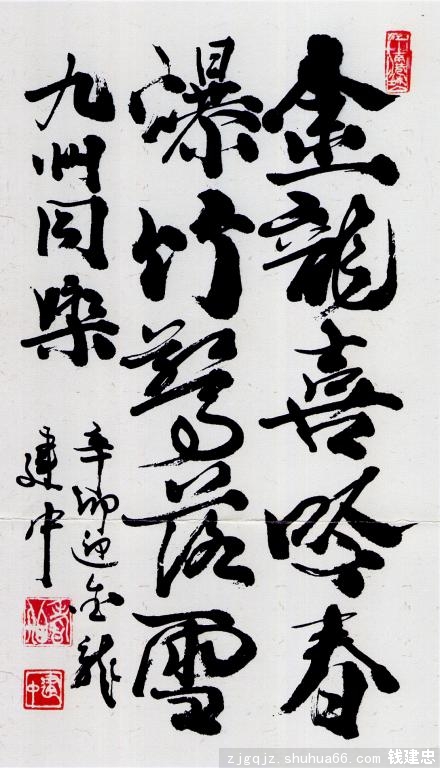 金龍喜吟春
爆竹驚落雪
九州同樂
辛卯迎金龍
建中
建中
zjgqjz.shuhua66.com 钱建忠